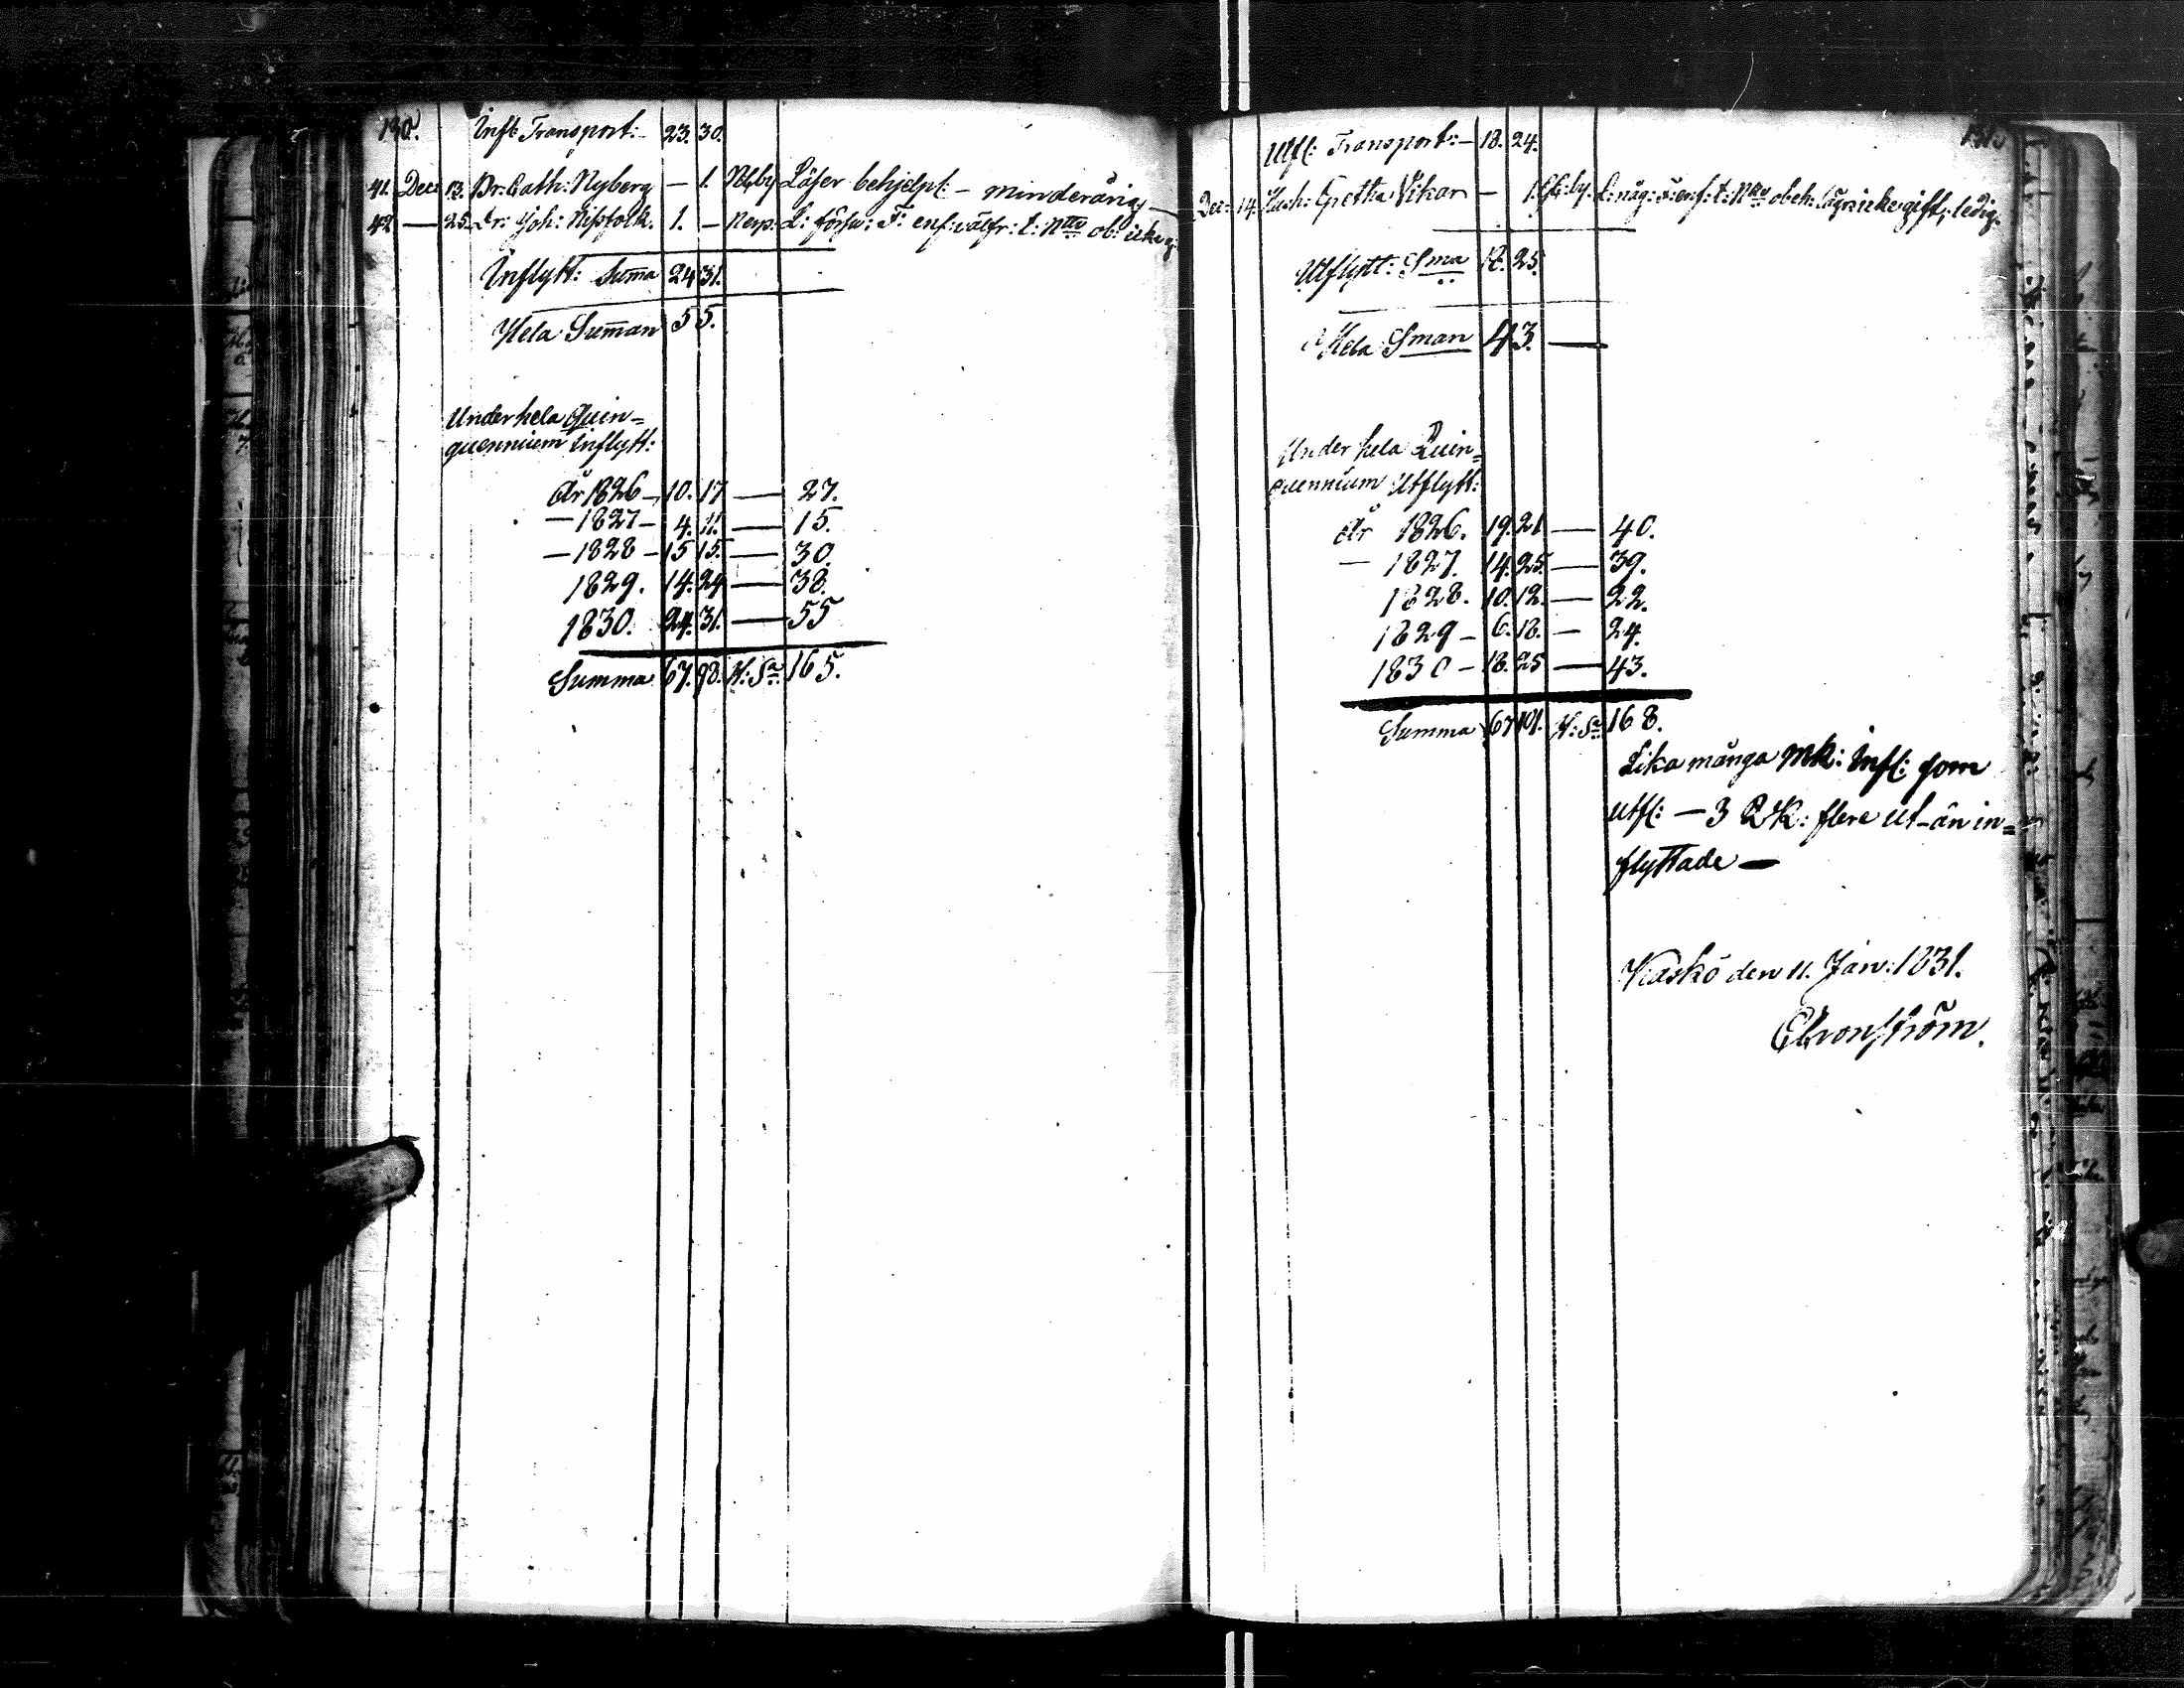 130.
Infl: Transport: 23. 30.
41. Dec: 13. Pr: Cath: Nyberg — 1. Läser behjelpl: — minderårig —
42 — 25. Dr: Joh: Nissfolk. 1. — Nerp: L: försv: F: enf: välfr: t: Nttv ob: icke g:
Inflytt: Suma 24 31.
Hela Suman 55.
Under hela Quin=
quennium Inflytt:
År 1826 — 10. 17 — 27.
— 1827 — 4. 11. — 15.
— 1828 — 15 15. — 30.
1829. 14. 24 — 38.
1830. 24. 31. — 55
Summa 67. 98. H: Sa 165.
131.
Utfl: Transport: — 18. 24.
Dec: 14. Gretha Vikar — 1. L: någ: enf: t: Nttv obeh: icke gift, ledig.
Utflytt: Sma 18. 25.
Hela Sman 43. —
Under hela Quin=
quennium Utflytt:
År 1826. 19. 21 — 40.
— 1827. 14. 25. — 39.
1828. 10. 12. — 22.
1829 — 6. 18. — 24.
1830 — 18. 25 — 43.
Summa 67 101. H: Sa 168.
Lika många Mk: Infl: som
Utfl: — 3 Qk: flere ut- än in=
flyttade —
Kaskö den 11. Jan: 1831.